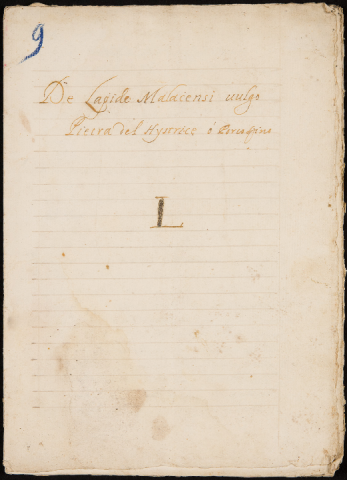 9
De Lapide Malaiensi vulgo
Pietra del Hystrice ó Porcospino
L